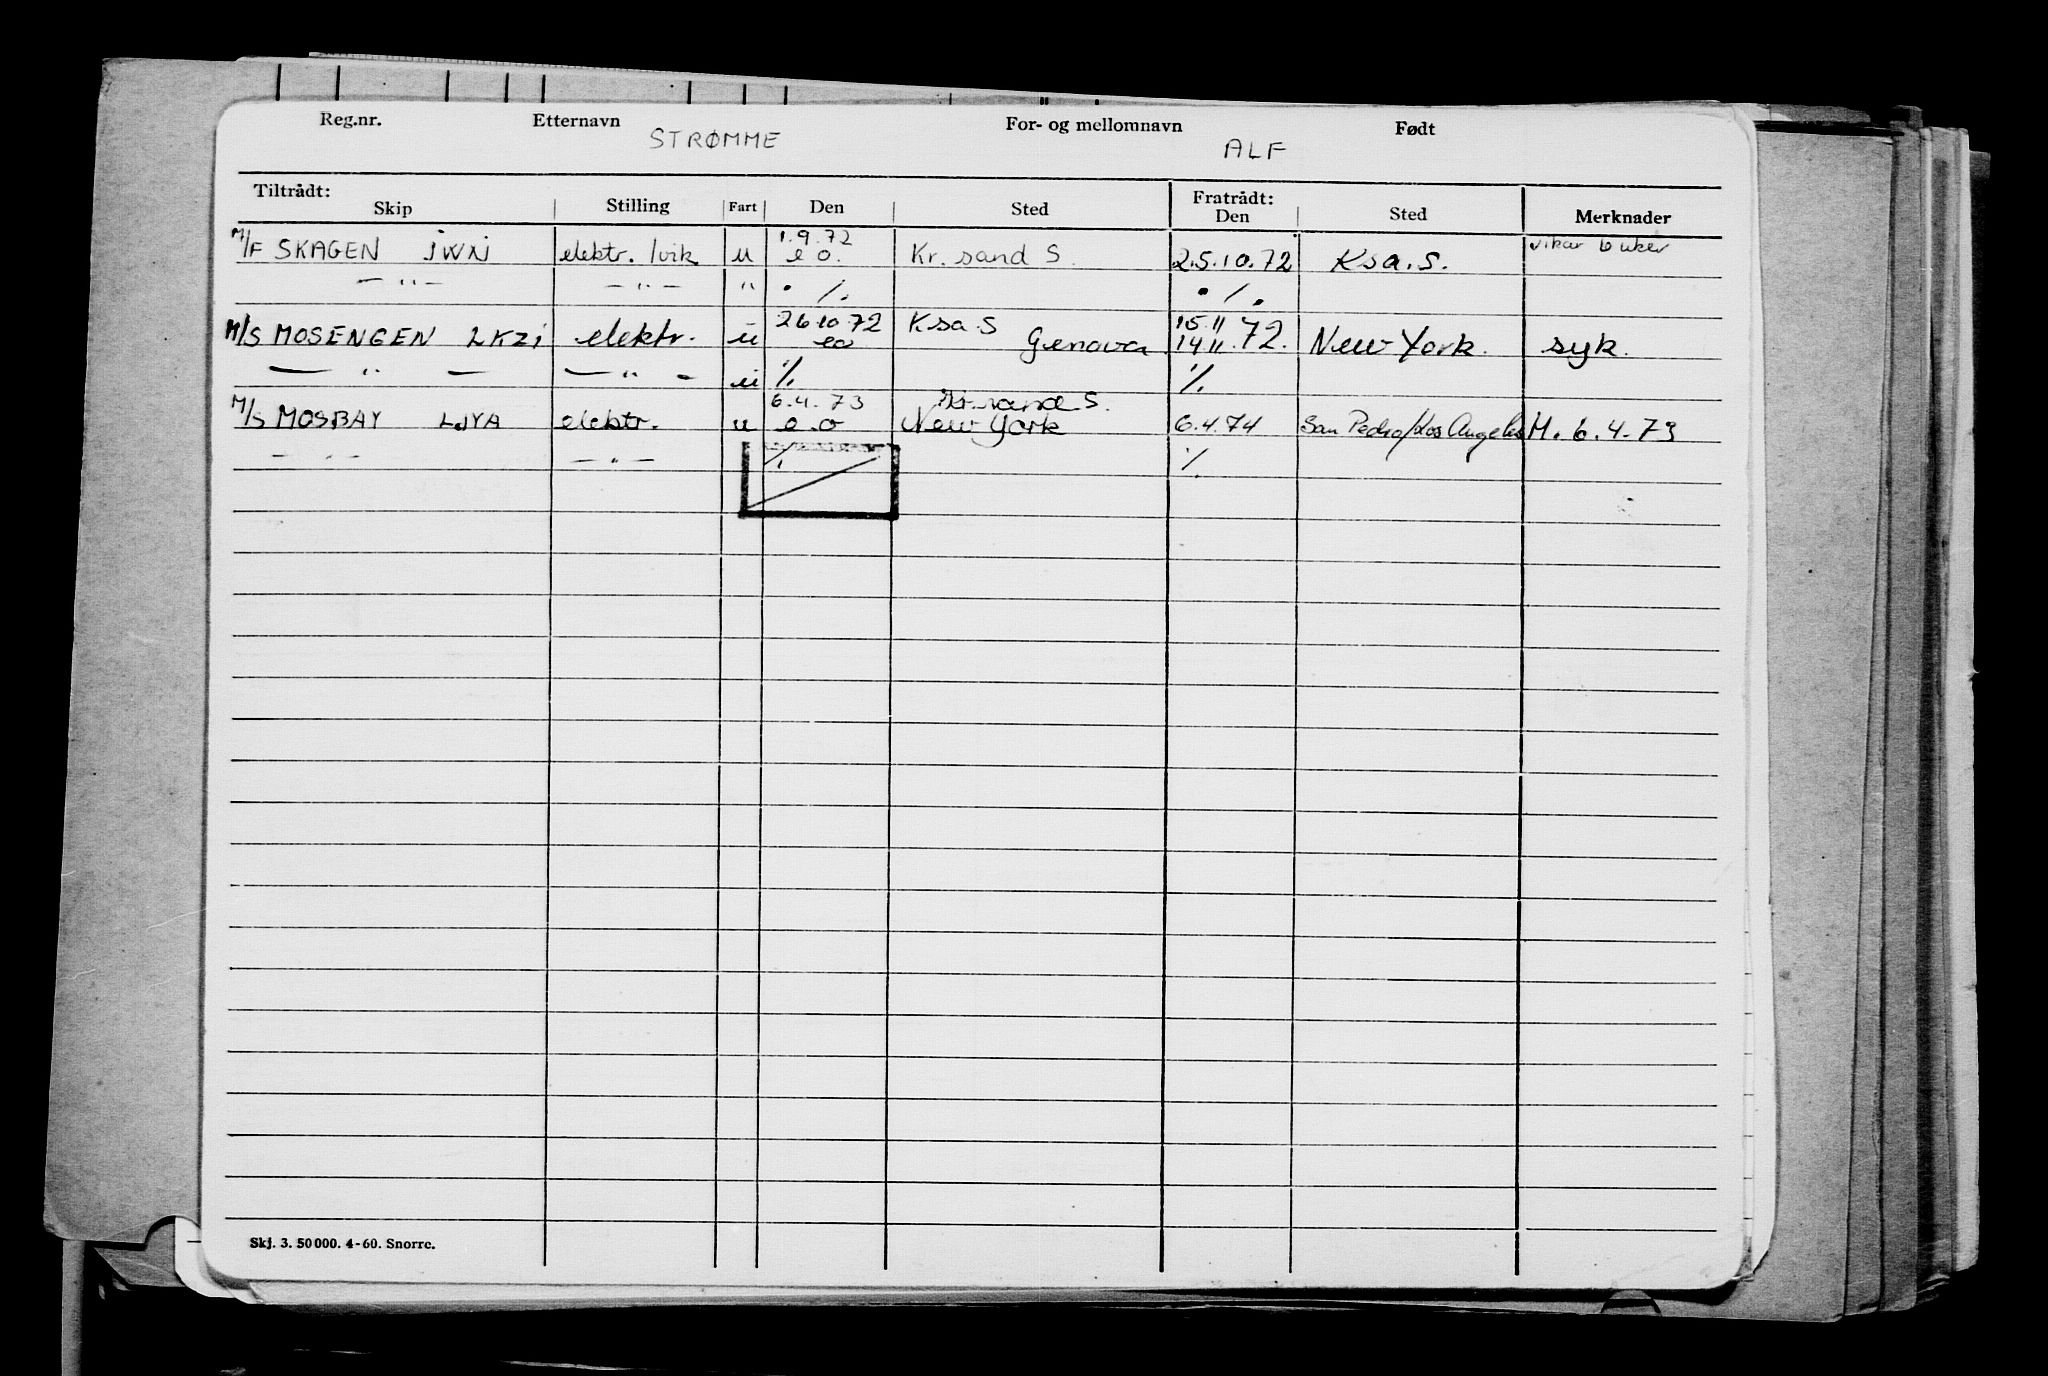 Reg.nr. Etternavn For- og mellomnavn Født
STRØMME ALF
Tiltrådt: Fratrådt:
Skip Stilling Fart Den Sted Den Sted Merknader
1.9.72 vikar 6 uker
M/F SKAGEN JWNJ elektr. /vik u e o. Kr. sand S. 25.10.72 Ksa. S.
— " — — " — " ./. ./.
26.10.72 Ksa S 15.11
M/S MOSENGEN LKZI elektr. u eo Genova 14.11.72. New York. syk.
— " — — " — u ./. ./.
6.4.73 Kr.sand S.
M/S MOSBAY LJYA elektr. u e.o New York 6.4.74 San Pedro/Los Angeles M. 6.4.73
— " — — " — ./. ./.
Skj. 3. 50 000. 4-60. Snorre.